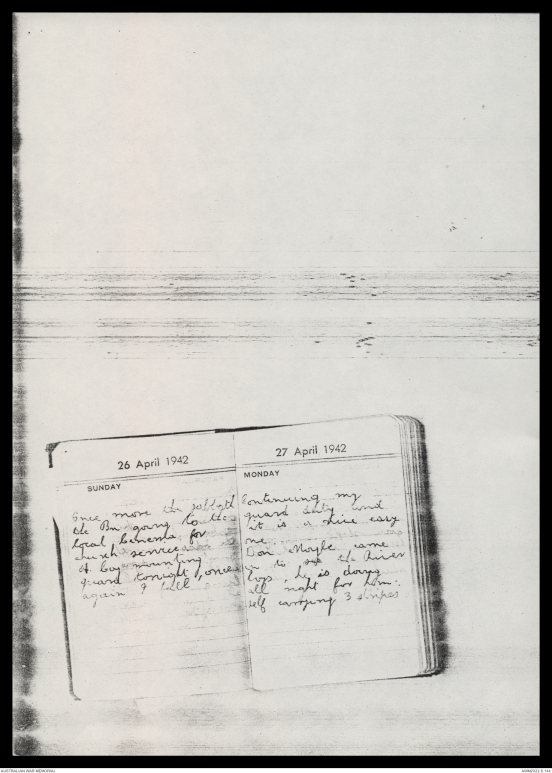 26 April 1942
SUNDAY
Once more the sabbath
the Bn going to the
local Cinema for
church service
A Coy mounting
guard tonight, once
again I tell
27 April 1942
MONDAY
Continuing my
guard duty and
it is a nice easy
one
Don Moyle came
in to see the River
boys, he is doing
all right for him-
self carrying 3 stripes
AUSTRALIAN WAR MEMORIAL